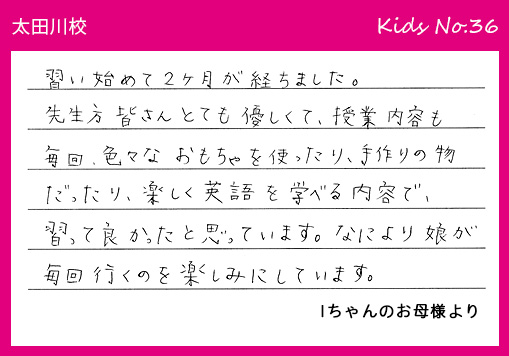 太田川校
Kids No.36
習い始めて2ヶ月が経ちました。
先生方皆さんとても優しくて、授業内容も
毎回、色々なおもちゃを使ったり、手作りの物
だったり、楽しく英語を学べる内容で、
習って良かったと思っています。なにより娘が
毎回行くのを楽しみにしています。
Iちゃんのお母様より